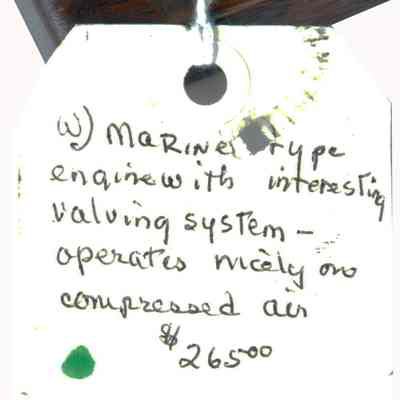 W) MARINE type
engine with interesting
valving system –
operates nicely on
compressed air
$265.00